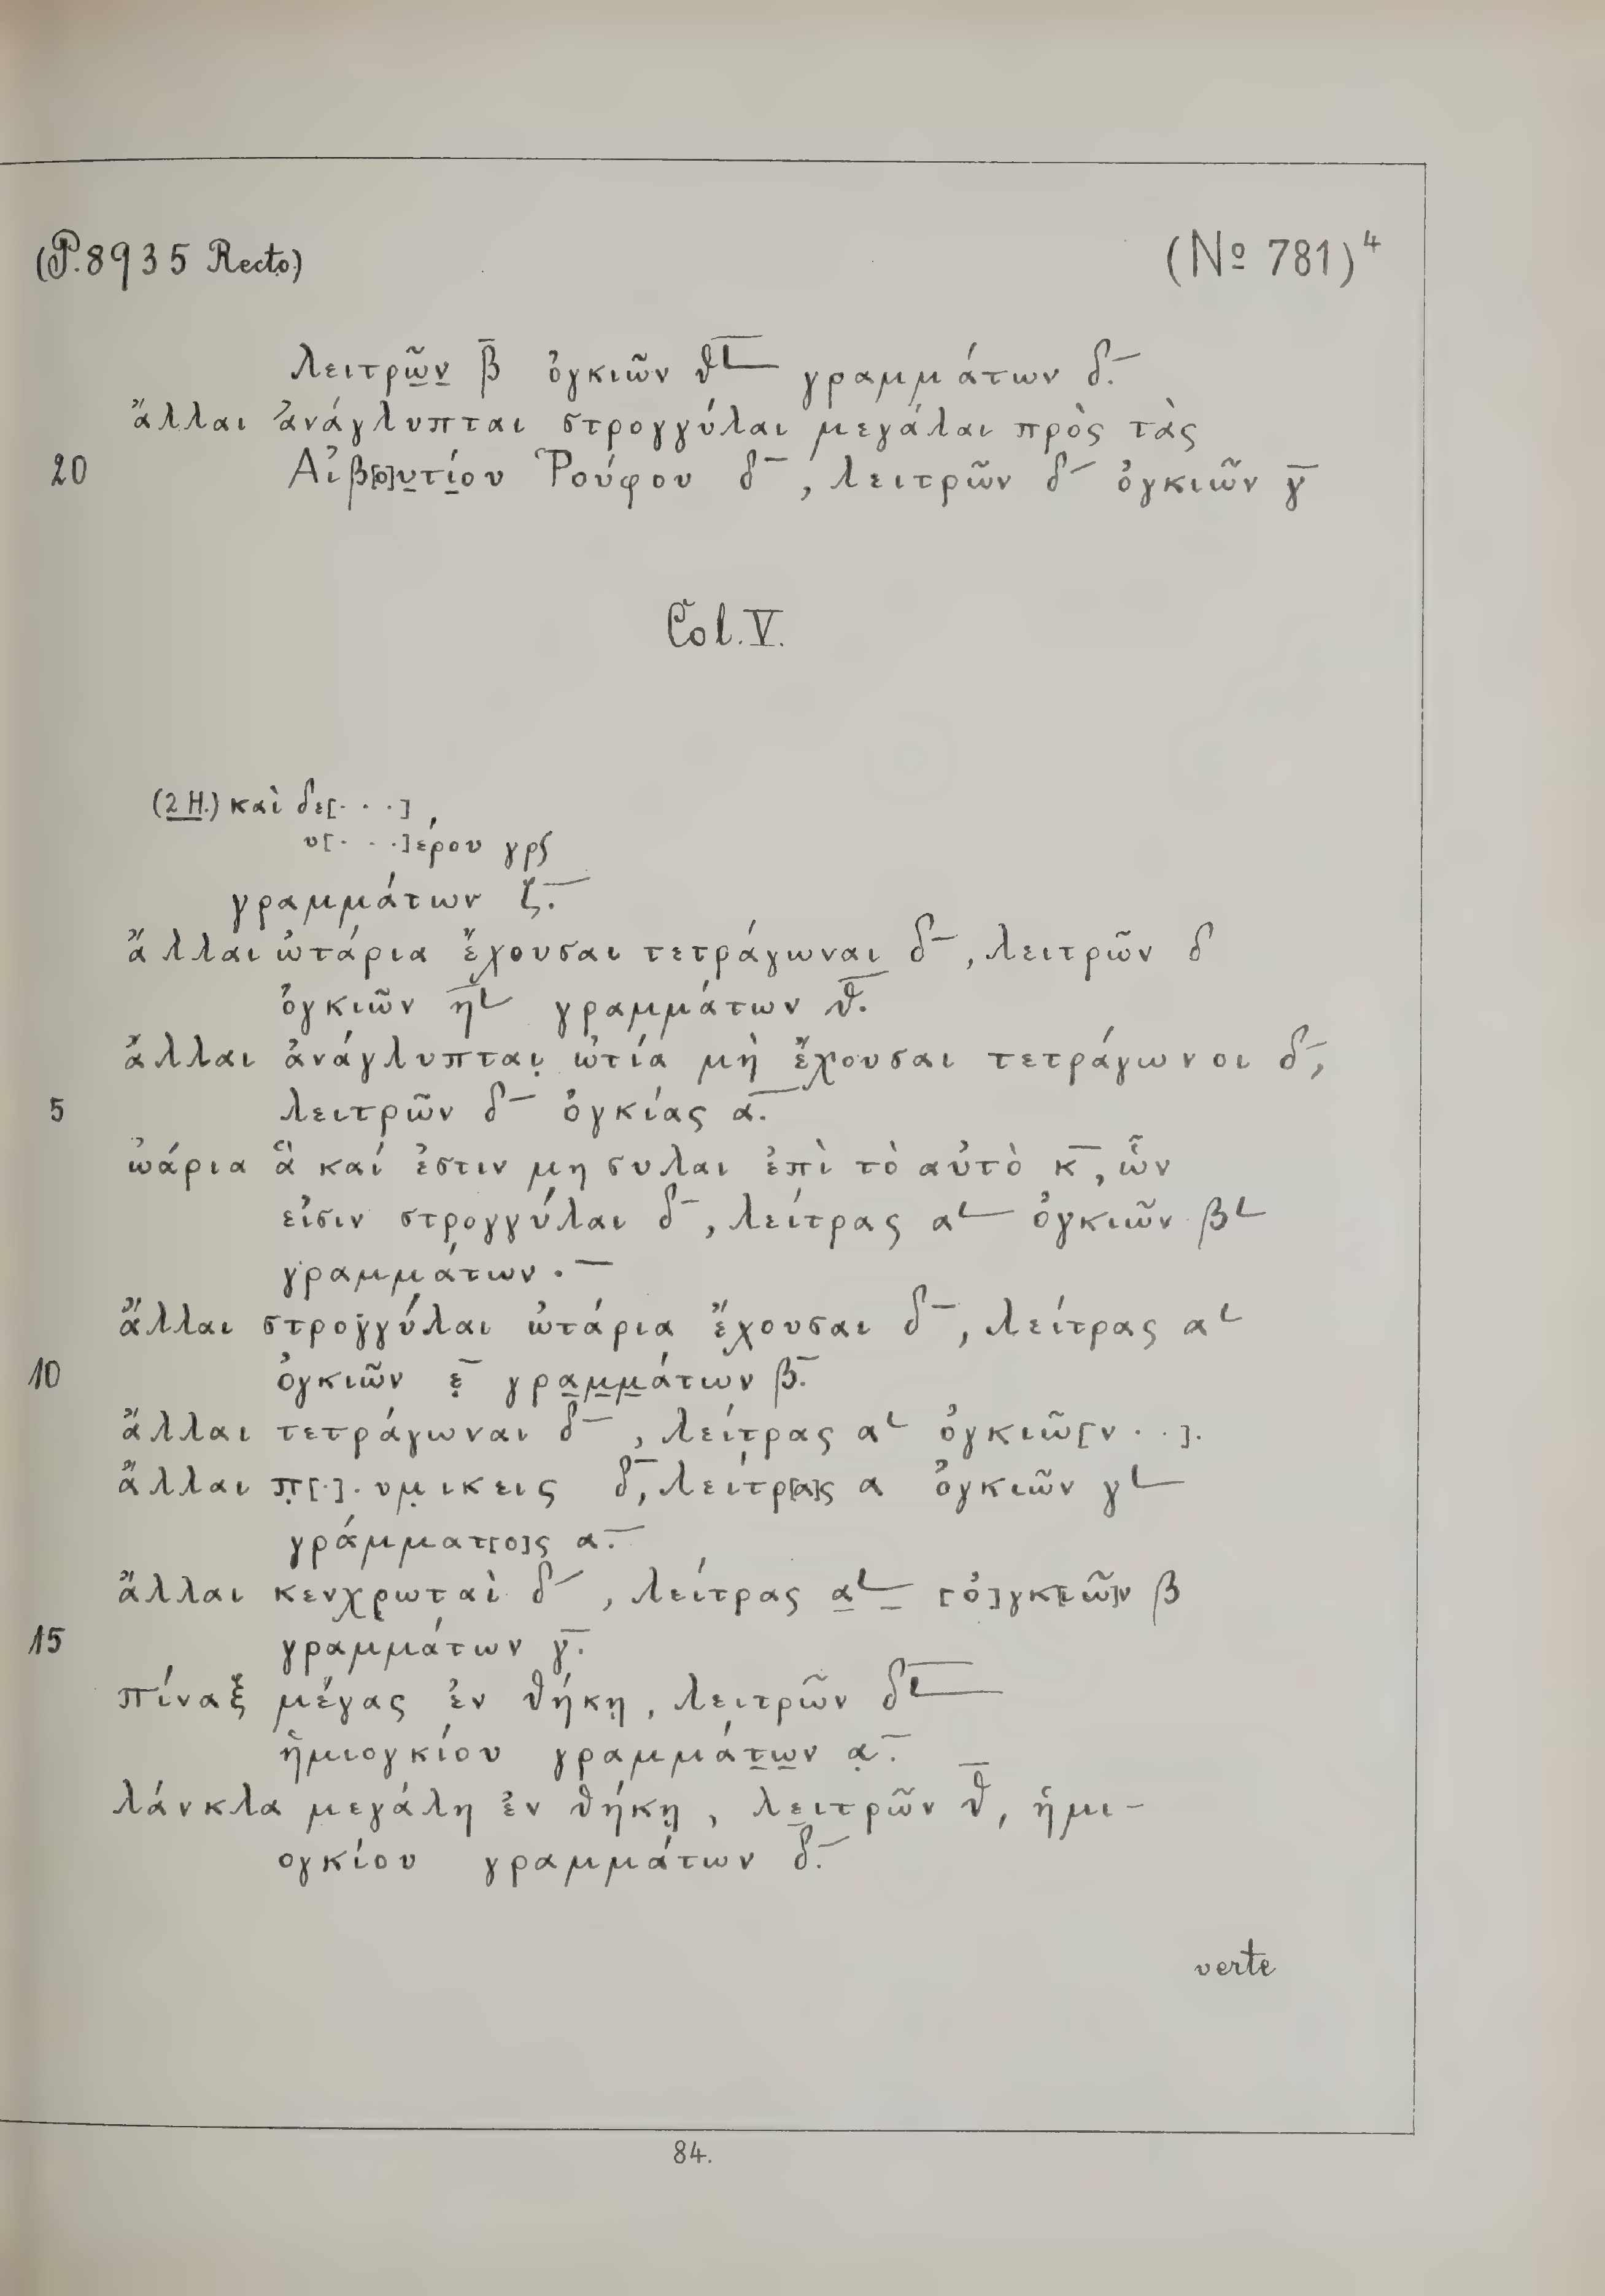 (P. 8935 Recto.)
(No 781)4
λειτρῶν β̅ ὀγκιῶν θ̅∟ γραμμάτων δ̅.
ἄλλαι ἀνάγλυπται στρογγύλαι μεγάλαι πρὸς τὰς
20 Αἰβ[ο]υτίου Ῥούφου δ̅, λειτρῶν δ̅ ὀγκιῶν γ̅
Col. V.
(2 H.) καὶ δε[· · ·]
υ[· · ·]έρου γρς
γραμμάτων ζ̅.
ἄλλαι ὠτάρια ἔχουσαι τετράγωναι δ̅, λειτρῶν δ
ὀγκιῶν η̅∟ γραμμάτων θ̅.
ἄλλαι ἀνάγλυπται̣ ὠτία μὴ ἔχουσαι τετράγωνοι δ̅,
5 λειτρῶν δ̅ ὀγκίας α̅.
ὠάρια ἃ καί ἐστιν μησυλαι ἐπὶ τὸ αὐτὸ κ̅, ὧν
εἰσιν στρογγύλαι δ̅, λείτρας α∟ ὀγκιῶν β∟
γραμμάτων · ̅
ἄλλαι στρογγύλαι ὠτάρια ἔχουσαι δ̅, λείτρας α∟
10 ὀγκιῶν ε̣̅ γραμμάτων β̅.
ἄλλαι τετράγωναι δ̅, λείτρας α∟ ὀγκιῶ[ν · ·].
ἄλλαι π̣[·]·υμ̣ικεις δ̅, λείτρ[α]ς α ὀγκιῶν γ∟
γράμματ[ο]ς α̅.
ἄλλαι κενχρωταὶ δ̅, λείτρας α∟ [ὀ]γκ[ιῶ]ν β
15 γραμμάτων γ̅.
πίναξ μέγας ἐν θήκῃ, λειτρῶν δ̅∟
ἡμιογκίου γραμμάτων α̣̅.
λάνκλα μεγάλη ἐν θήκῃ, λειτρῶν θ̅, ἡμι-
ογκίου γραμμάτων δ̅.
verte
84.